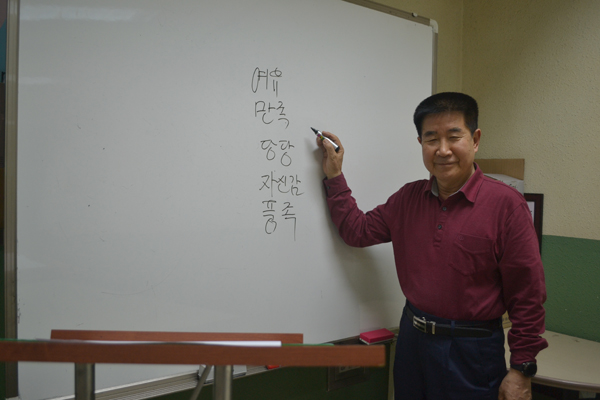 여유
만족
당당
자신감
풍족